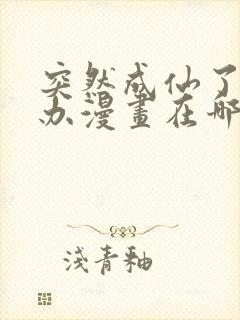 突然成仙了
办漫画在哪
浅青釉